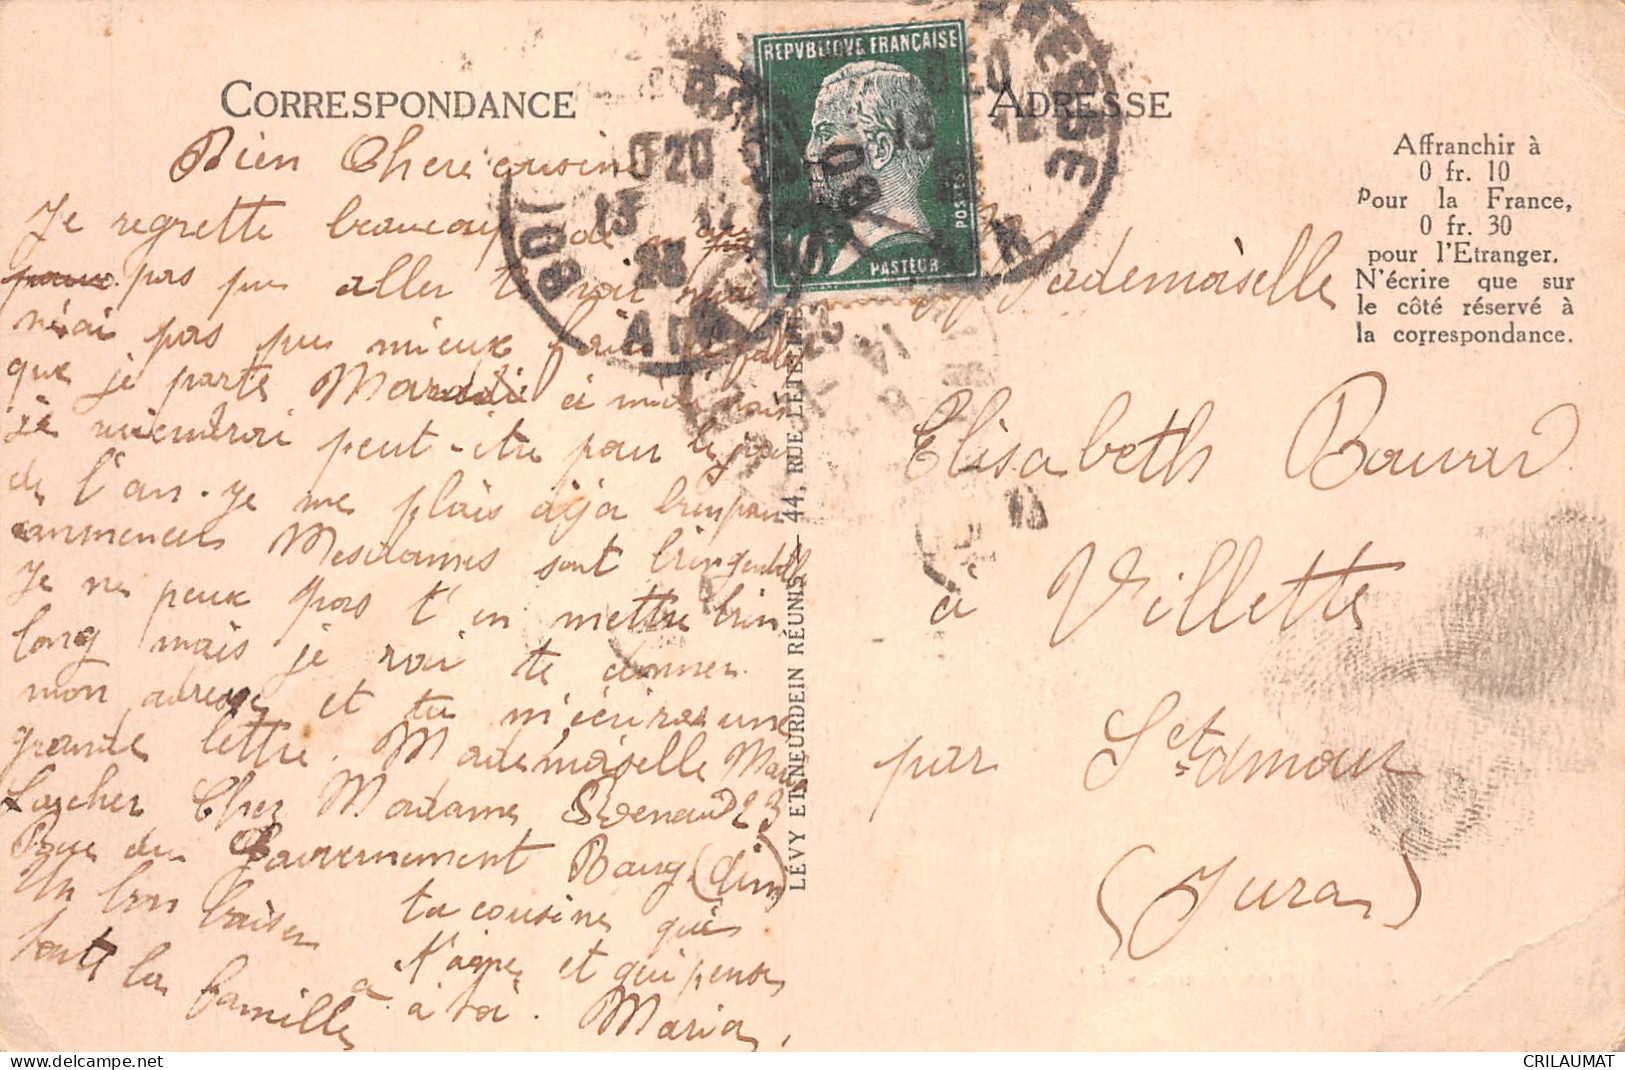 CORRESPONDANCE
Bien Cheri cousine
Je regrette beaucoup de n'
pas pu aller te voir mais
n'ai pas pu mieux faire
que je parte Mardi
je viendrai peut-être pour le jour
de l'an. Je me plais déja bien pour
commencer Mesdames sont bien gentilles
Je ne peux pas t'en mettre bien
long mais je vai te donner
mon adresse et tu m'écriras une
grande lettre. Mademoiselle Marie
Chez Madame 23
Rue du Gouvernement Bourg (Ain)
Un bon baiser ta cousine qui
t'aime et qui pense
toute la famille à toi. Maria
REPVBLIQVE FRANÇAISE
POSTES
PASTEUR
LÉVY ET NEURDEIN RÉUNIS — 44, RUE LETELLIER
ADRESSE
Affranchir à
0 fr. 10
Pour la France,
0 fr. 30
pour l'Etranger.
N'écrire que sur
le côté réservé à
la correspondance.
Mademoiselle
Elisabeth
à Villette
par St-Amour
(Jura)
CRILAUMAT